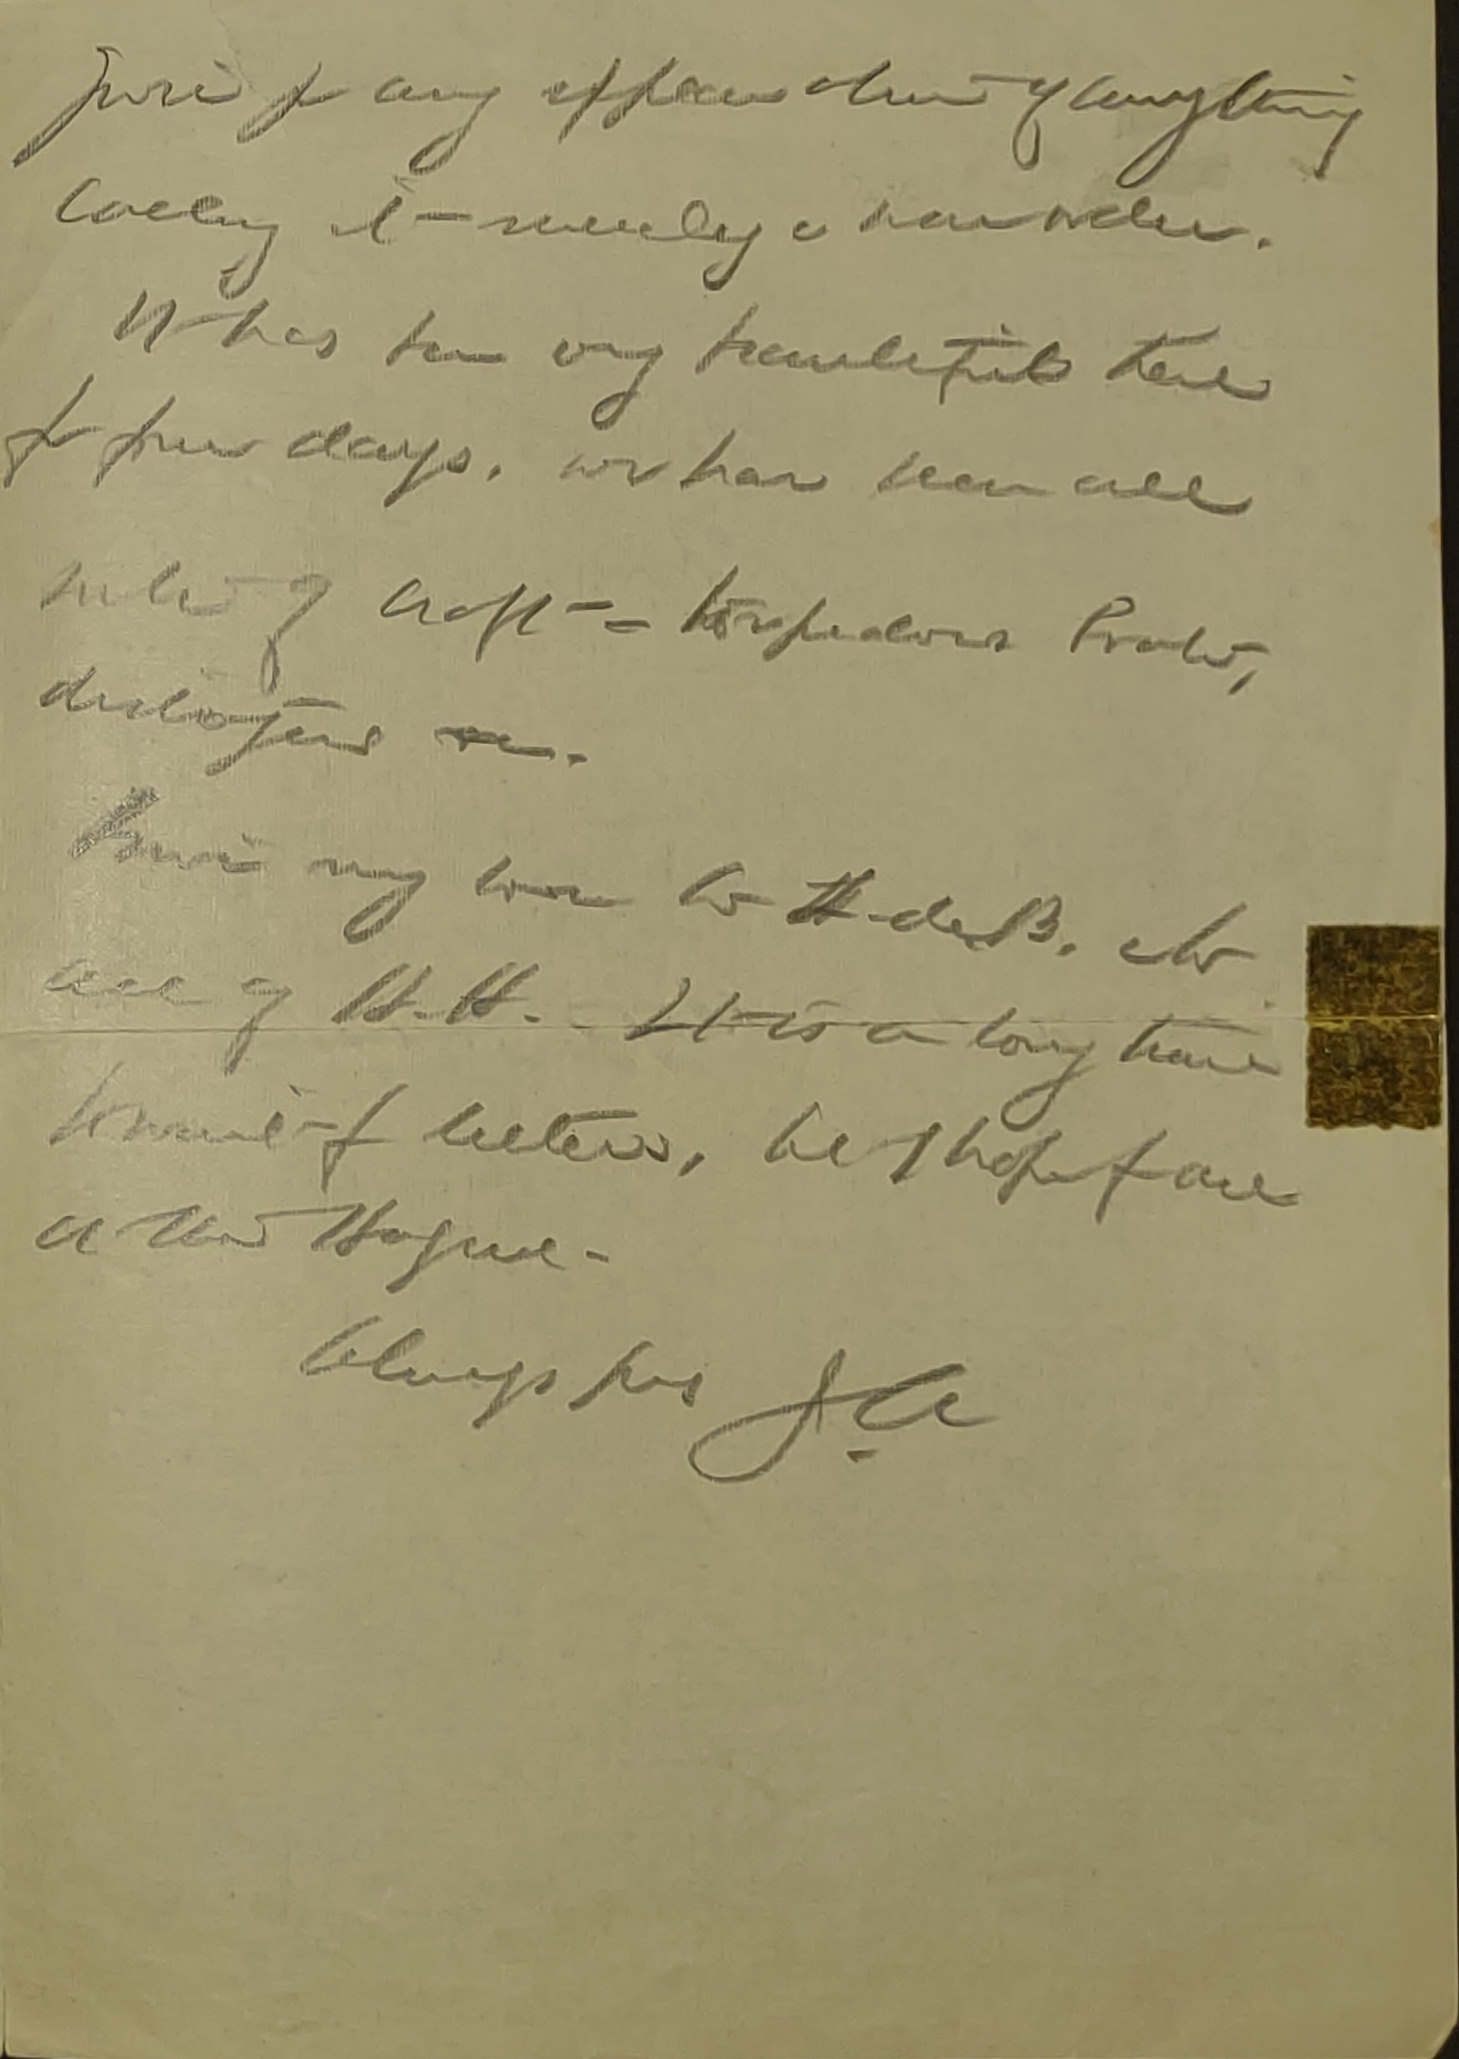 for any of anything
calling it merely a
It has been very beautiful here
for four days. we have seen all
sorts of craft - torpedoes boats,
destroyers
Give my love to H. deB. & to
all of H.H. - It is a long time
to wait for letters, but I hope for one
at the Hague -
Always yrs JA